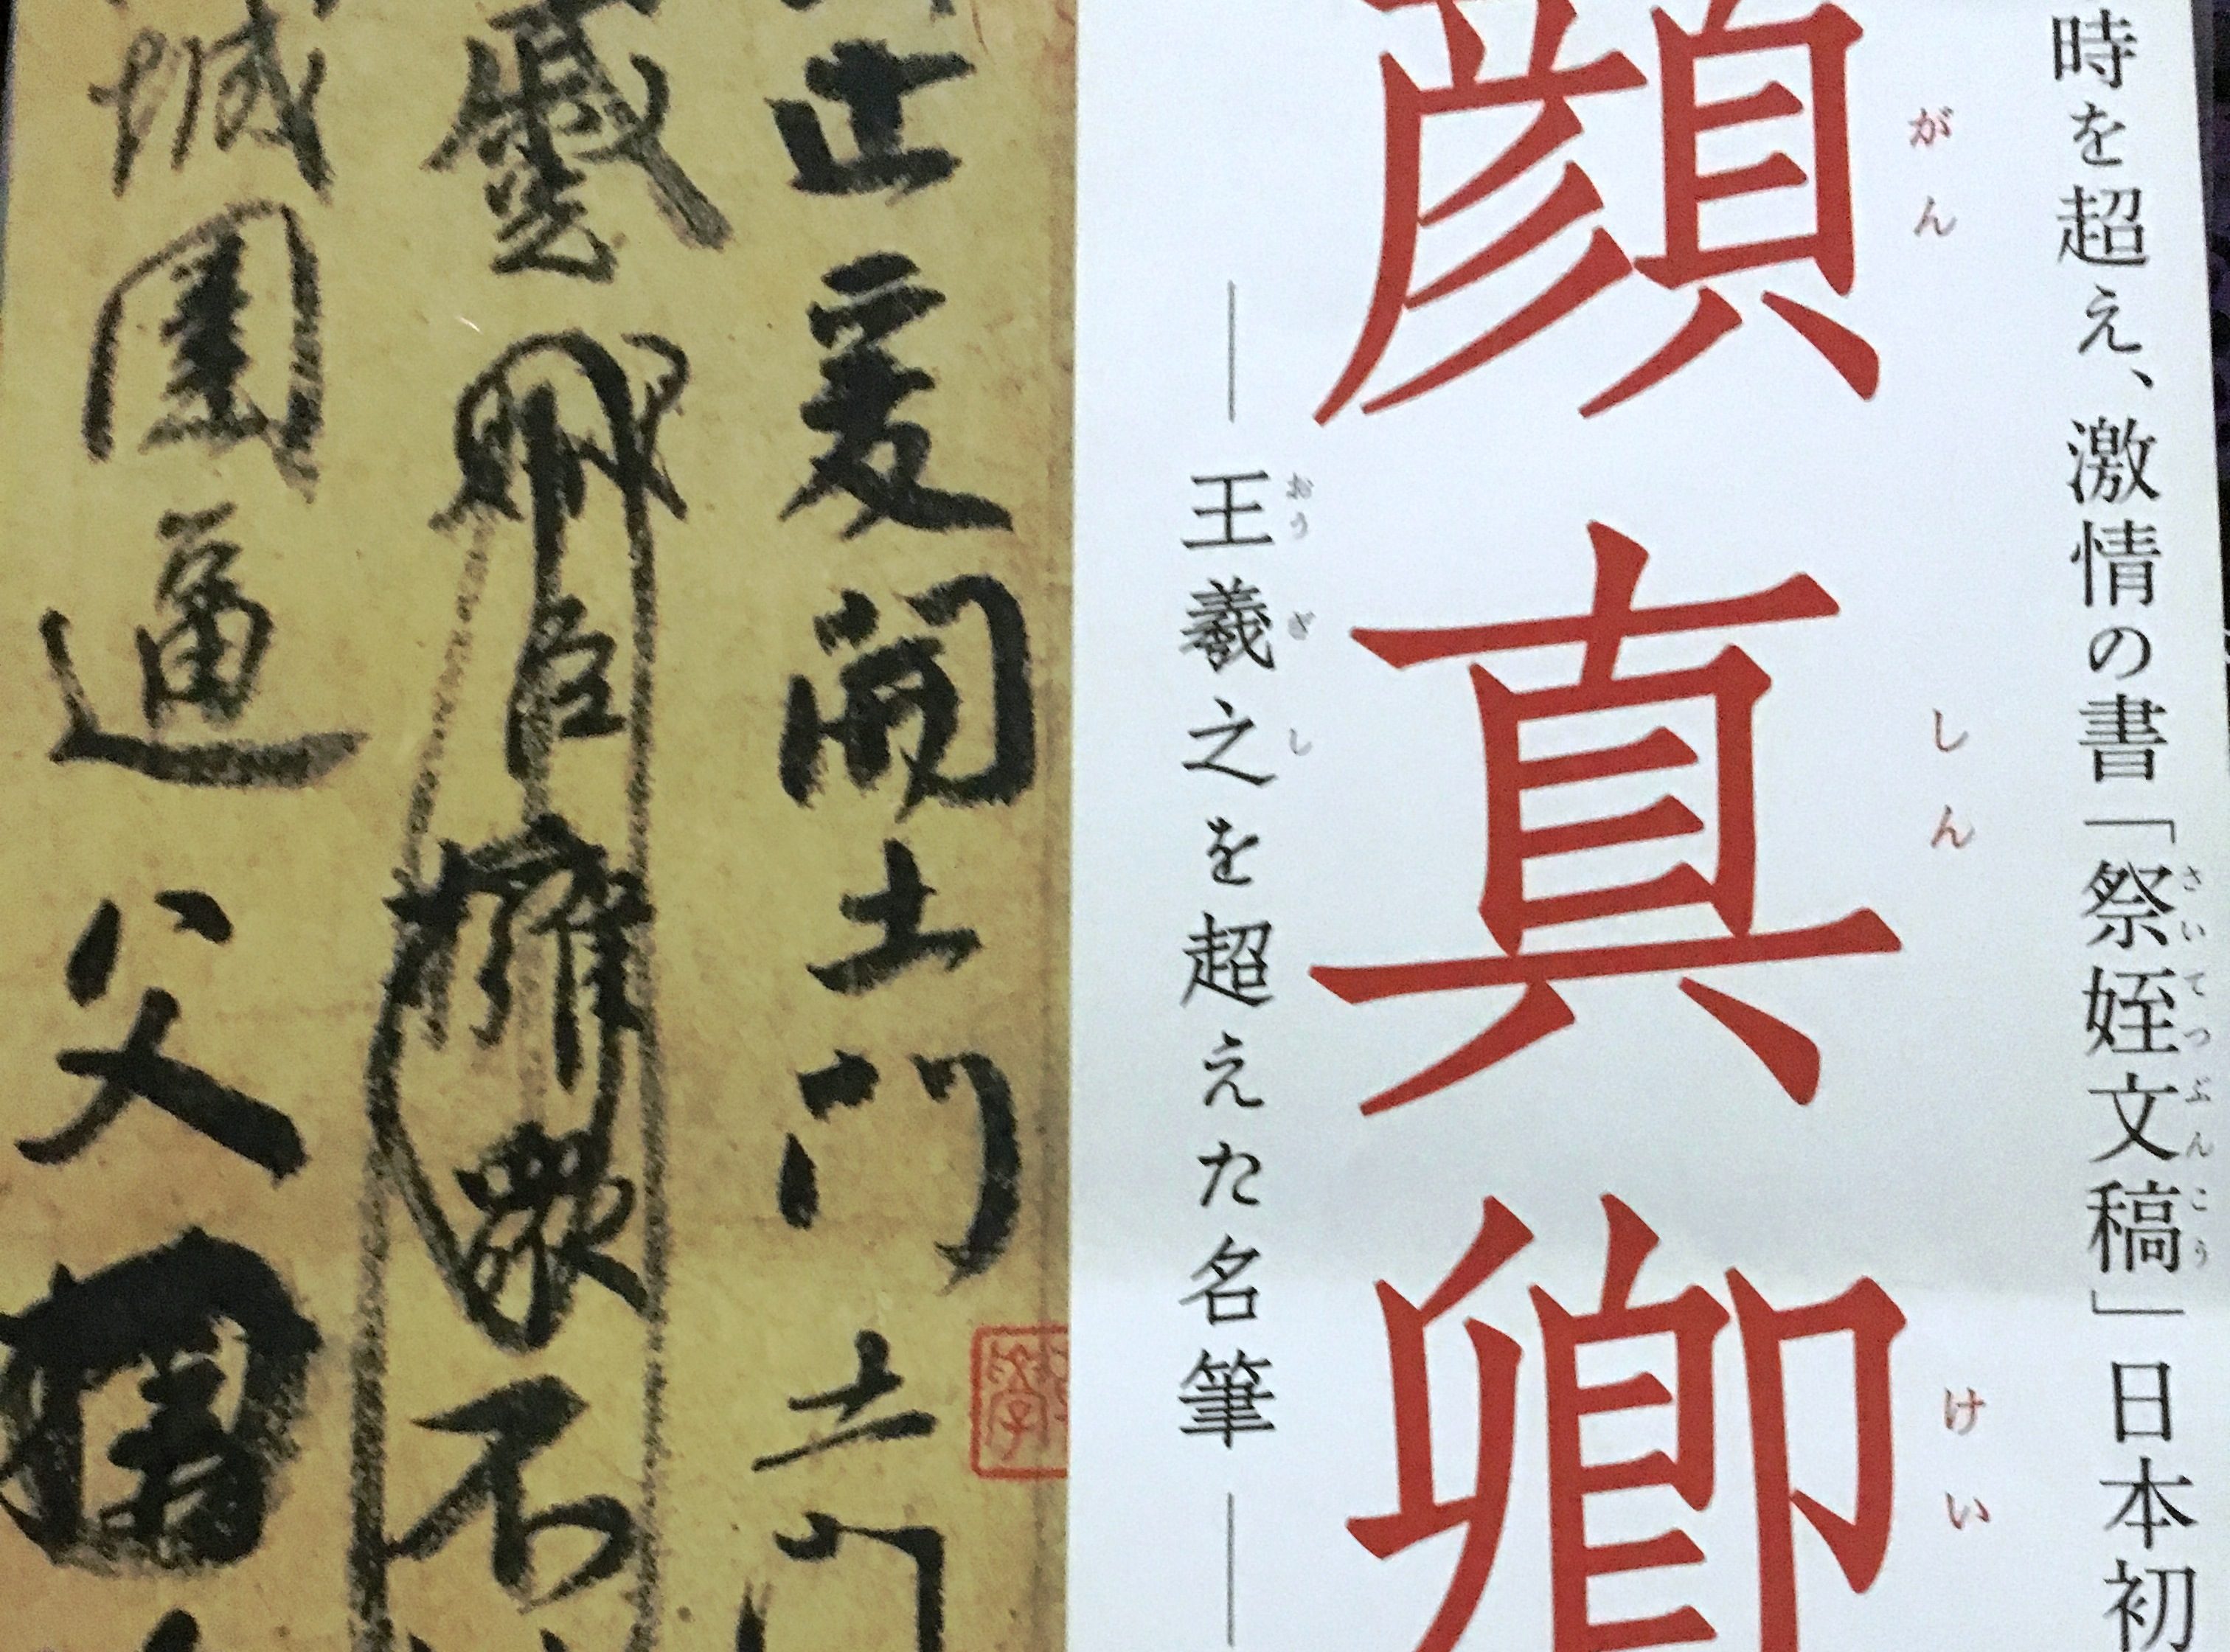 時を超え、激情の書「祭姪文稿」日本初
さいてつぶんこう
がんしんけい
顔真卿
おうぎし
王羲之を超えた名筆
止爰開土門土門
蹙賊臣擁衆不
城圍逼父